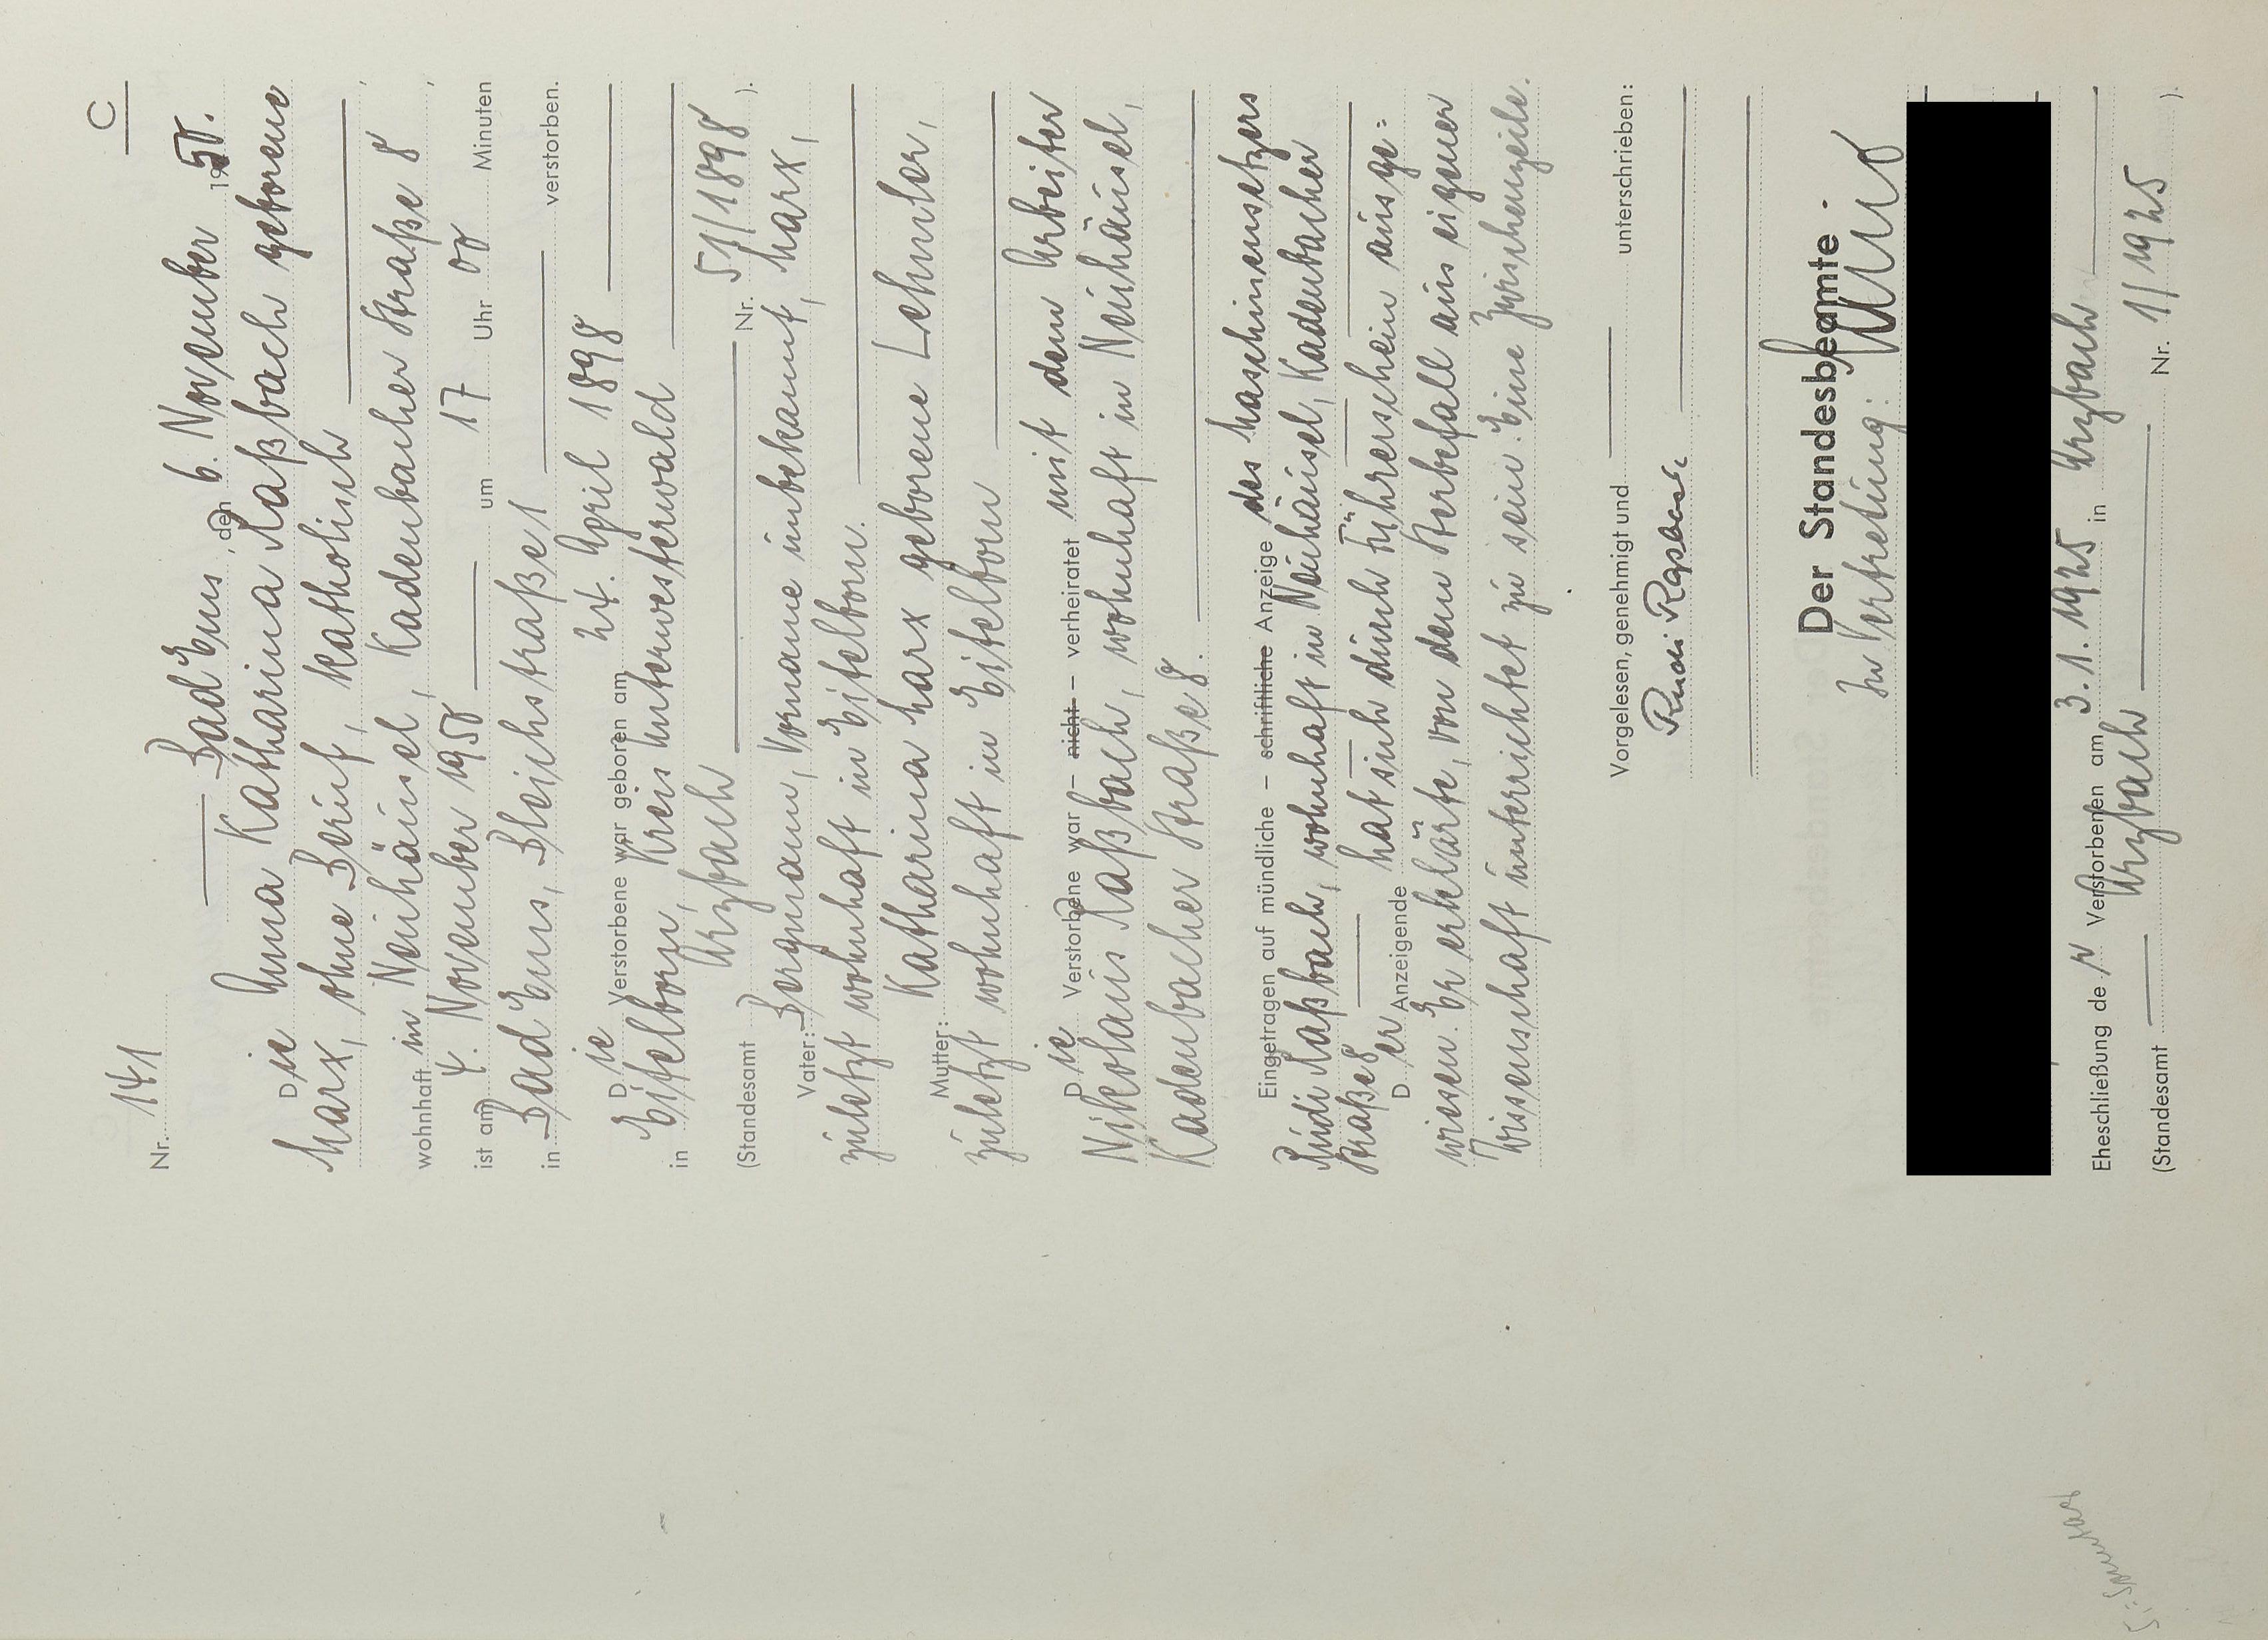 C
Nr. 141
Bad Ems, den 6. November 1950.
Die Anna Katharina Raßbach geborene
Marx, ohne Beruf, katholisch
wohnhaft in Neuhäusel, Kadenbacher Straße 8,
ist am 4. November 1950 um 17 Uhr 00 Minuten
in Bad Ems, Bleichstraße 1 verstorben.
Die Verstorbene war geboren am 24. April 1898
in Eitelborn, Kreis Unterwesterwald
(Standesamt Arzbach Nr. 51/1898).
Vater: Bergmann, Vorname unbekannt, Marx,
zuletzt wohnhaft in Eitelborn.
Mutter: Katharina Marx geborene Lehmler,
zuletzt wohnhaft in Eitelborn
Die Verstorbene war – nicht – verheiratet mit dem Arbeiter
Nikolaus Raßbach, wohnhaft in Neuhäusel,
Kadenbacher Straße 8.
Eingetragen auf mündliche – schriftliche Anzeige des Maschinensetzers
Rudi Raßbach, wohnhaft in Neuhäusel, Kadenbacher
Straße 8
Der Anzeigende hat sich durch Führerschein ausge=
wiesen. Er erklärte, von dem Sterbefall aus eigener
Wissenschaft unterrichtet zu sein. Eine Zwischenzeile.
Vorgelesen, genehmigt und unterschrieben:
Rudi
Der Standesbeamte
In Vertretung:
Eheschließung der Verstorbenen am 3.1.1925 in Arzbach
(Standesamt Arzbach Nr. 1/1925).